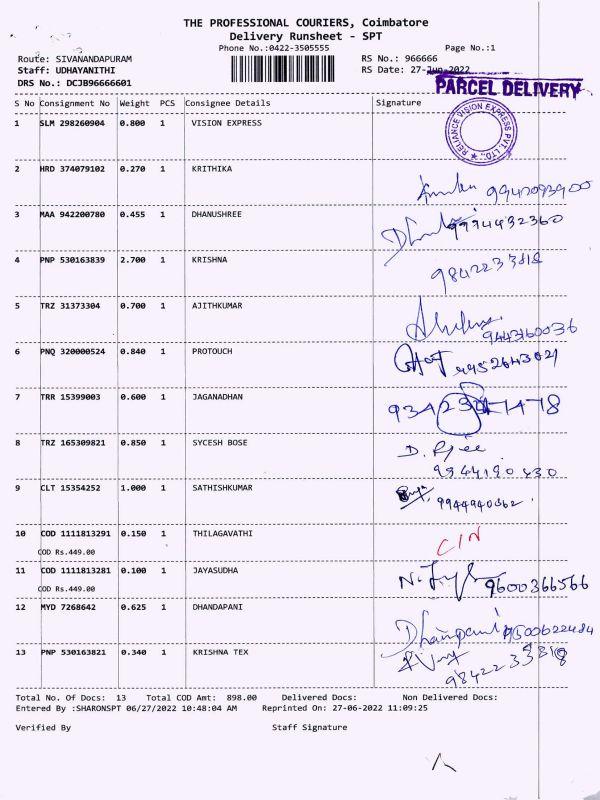 THE PROFESSIONAL COURIERS, Coimbatore
Delivery Runsheet - SPT
Phone No.:0422-3505555 Page No.:1
Route: SIVANANDAPURAM RS No.: 966666
Staff: UDHAYANITHI RS Date: 27-Jun-2022
DRS No.: DCJB96666601
PARCEL DELIVERY
S No Consignment No Weight PCS Consignee Details Signature
1 SLM 298260904 0.800 1 VISION EXPRESS
RELIANCE VISION EXPRESS PVT. LTD.
2 HRD 374079102 0.270 1 KRITHIKA
9942093900
3 MAA 942200780 0.455 1 DHANUSHREE
9994492360
4 PNP 530163839 2.700 1 KRISHNA
9842233818
5 TRZ 31373304 0.700 1 AJITHKUMAR
9443160036
6 PNQ 320000524 0.840 1 PROTOUCH
7 TRR 15399003 0.600 1 JAGANADHAN
8 TRZ 165309821 0.850 1 SYCESH BOSE
D.
9944190430
9 CLT 15354252 1.000 1 SATHISHKUMAR
9944940662.
10 COD 1111813291 0.150 1 THILAGAVATHI
COD Rs.449.00
C/N
11 COD 1111813281 0.100 1 JAYASUDHA
COD Rs.449.00
9600366566
12 MYD 7268642 0.625 1 DHANDAPANI
9500622484
13 PNP 530163821 0.340 1 KRISHNA TEX
9842233818
Total No. Of Docs: 13 Total COD Amt: 898.00 Delivered Docs: Non Delivered Docs:
Entered By :SHARONSPT 06/27/2022 10:48:04 AM Reprinted On: 27-06-2022 11:09:25
Verified By Staff Signature